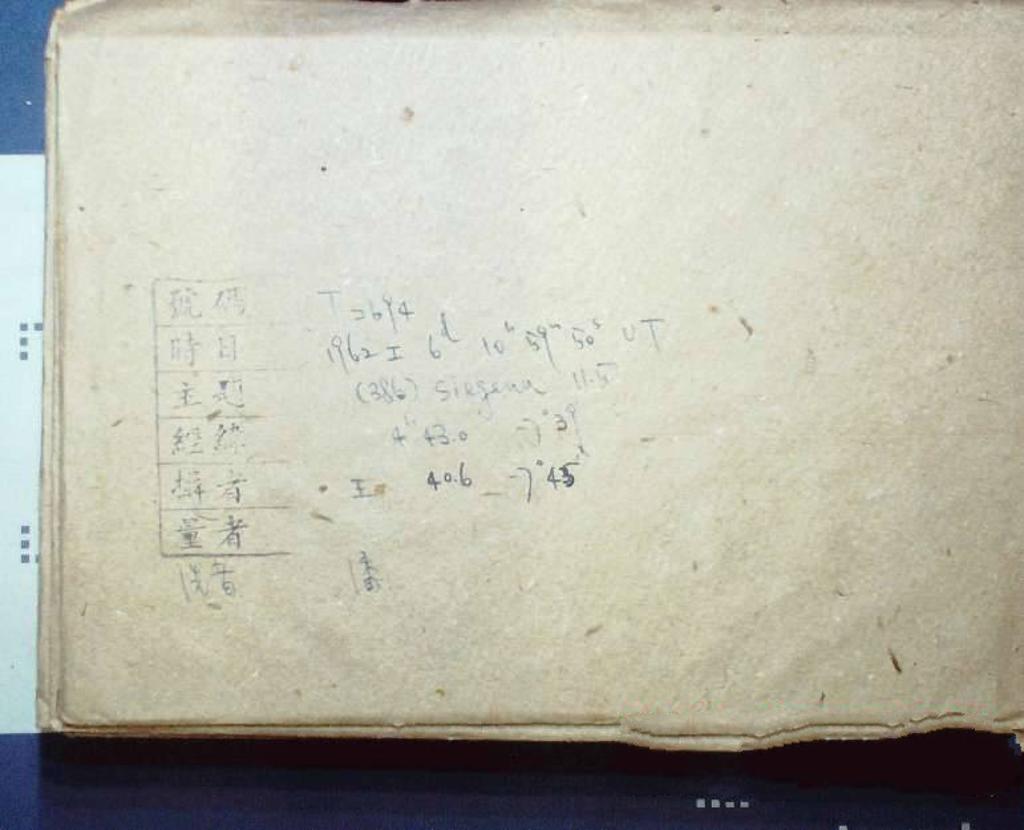 號碼 T2694
時日 1962 I 6ᵈ 10ʰ 59ᵐ 50ˢ UT
主題 (386) Siegena 11.5
經緯 4ʰ 43.0 -7°39'
攝者 王 40.6 -7°45'
量者
洗者 潘